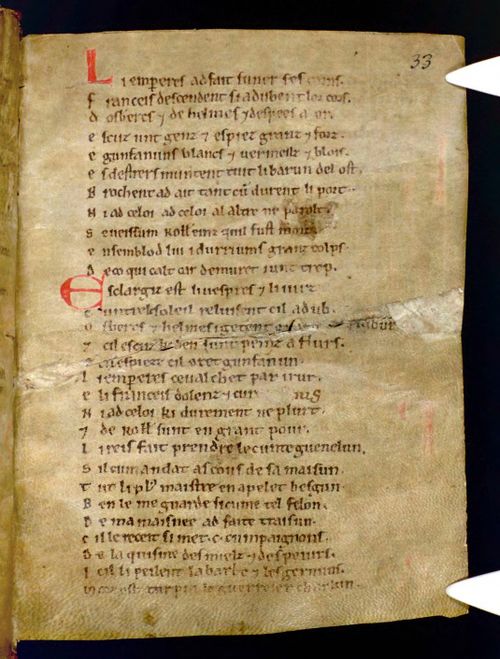 33
Li emperes ad fait suner ses corns.
Franceis descendent si adubent lor cors.
D osbercs ⁊ de helmes ⁊ despees a or.
E scuz unt genz ⁊ espiez granz ⁊ forz.
E gunfanuns blancs ⁊ vermeilz ⁊ blois.
E s destrers muntent tuit li barun del ost.
B rochent ad ait tant cū durent li port.
N i ad celoi ad celoi al altre ne parolt.
S e veissum Roll' einz quil fust mort
E nsembl od lui i durriums granz colps.
D e co qui calt car demuret iunt trop.
Esclargiz est li vespres ⁊ li iurz
C untre le soleil reluisent cil adub.
O sbercs ⁊ helmes i getent
⁊ cil escuz ki ben sunt peinz a flurs.
E cil espiez cil oret gunfanun.
L i emperes cevalchet par irur.
E li franceis dolenz ⁊ cur
N i ad celoi ki durement ne plurt.
⁊ de Roll' sunt en grant pour.
L i reis fait prendre le cunte guenelun.
S il cumandat as cous de sa maisun.
T ut li pl' maistre en apelet besgun.
B en le me guarde si cume tel felon.
D e ma maisnee ad faite traisun.
C il le receit si met .c. cumpaignons.
D e la quisine des mielz ⁊ des peiurs.
I cil li peilent la barbe ⁊ les gernuns.